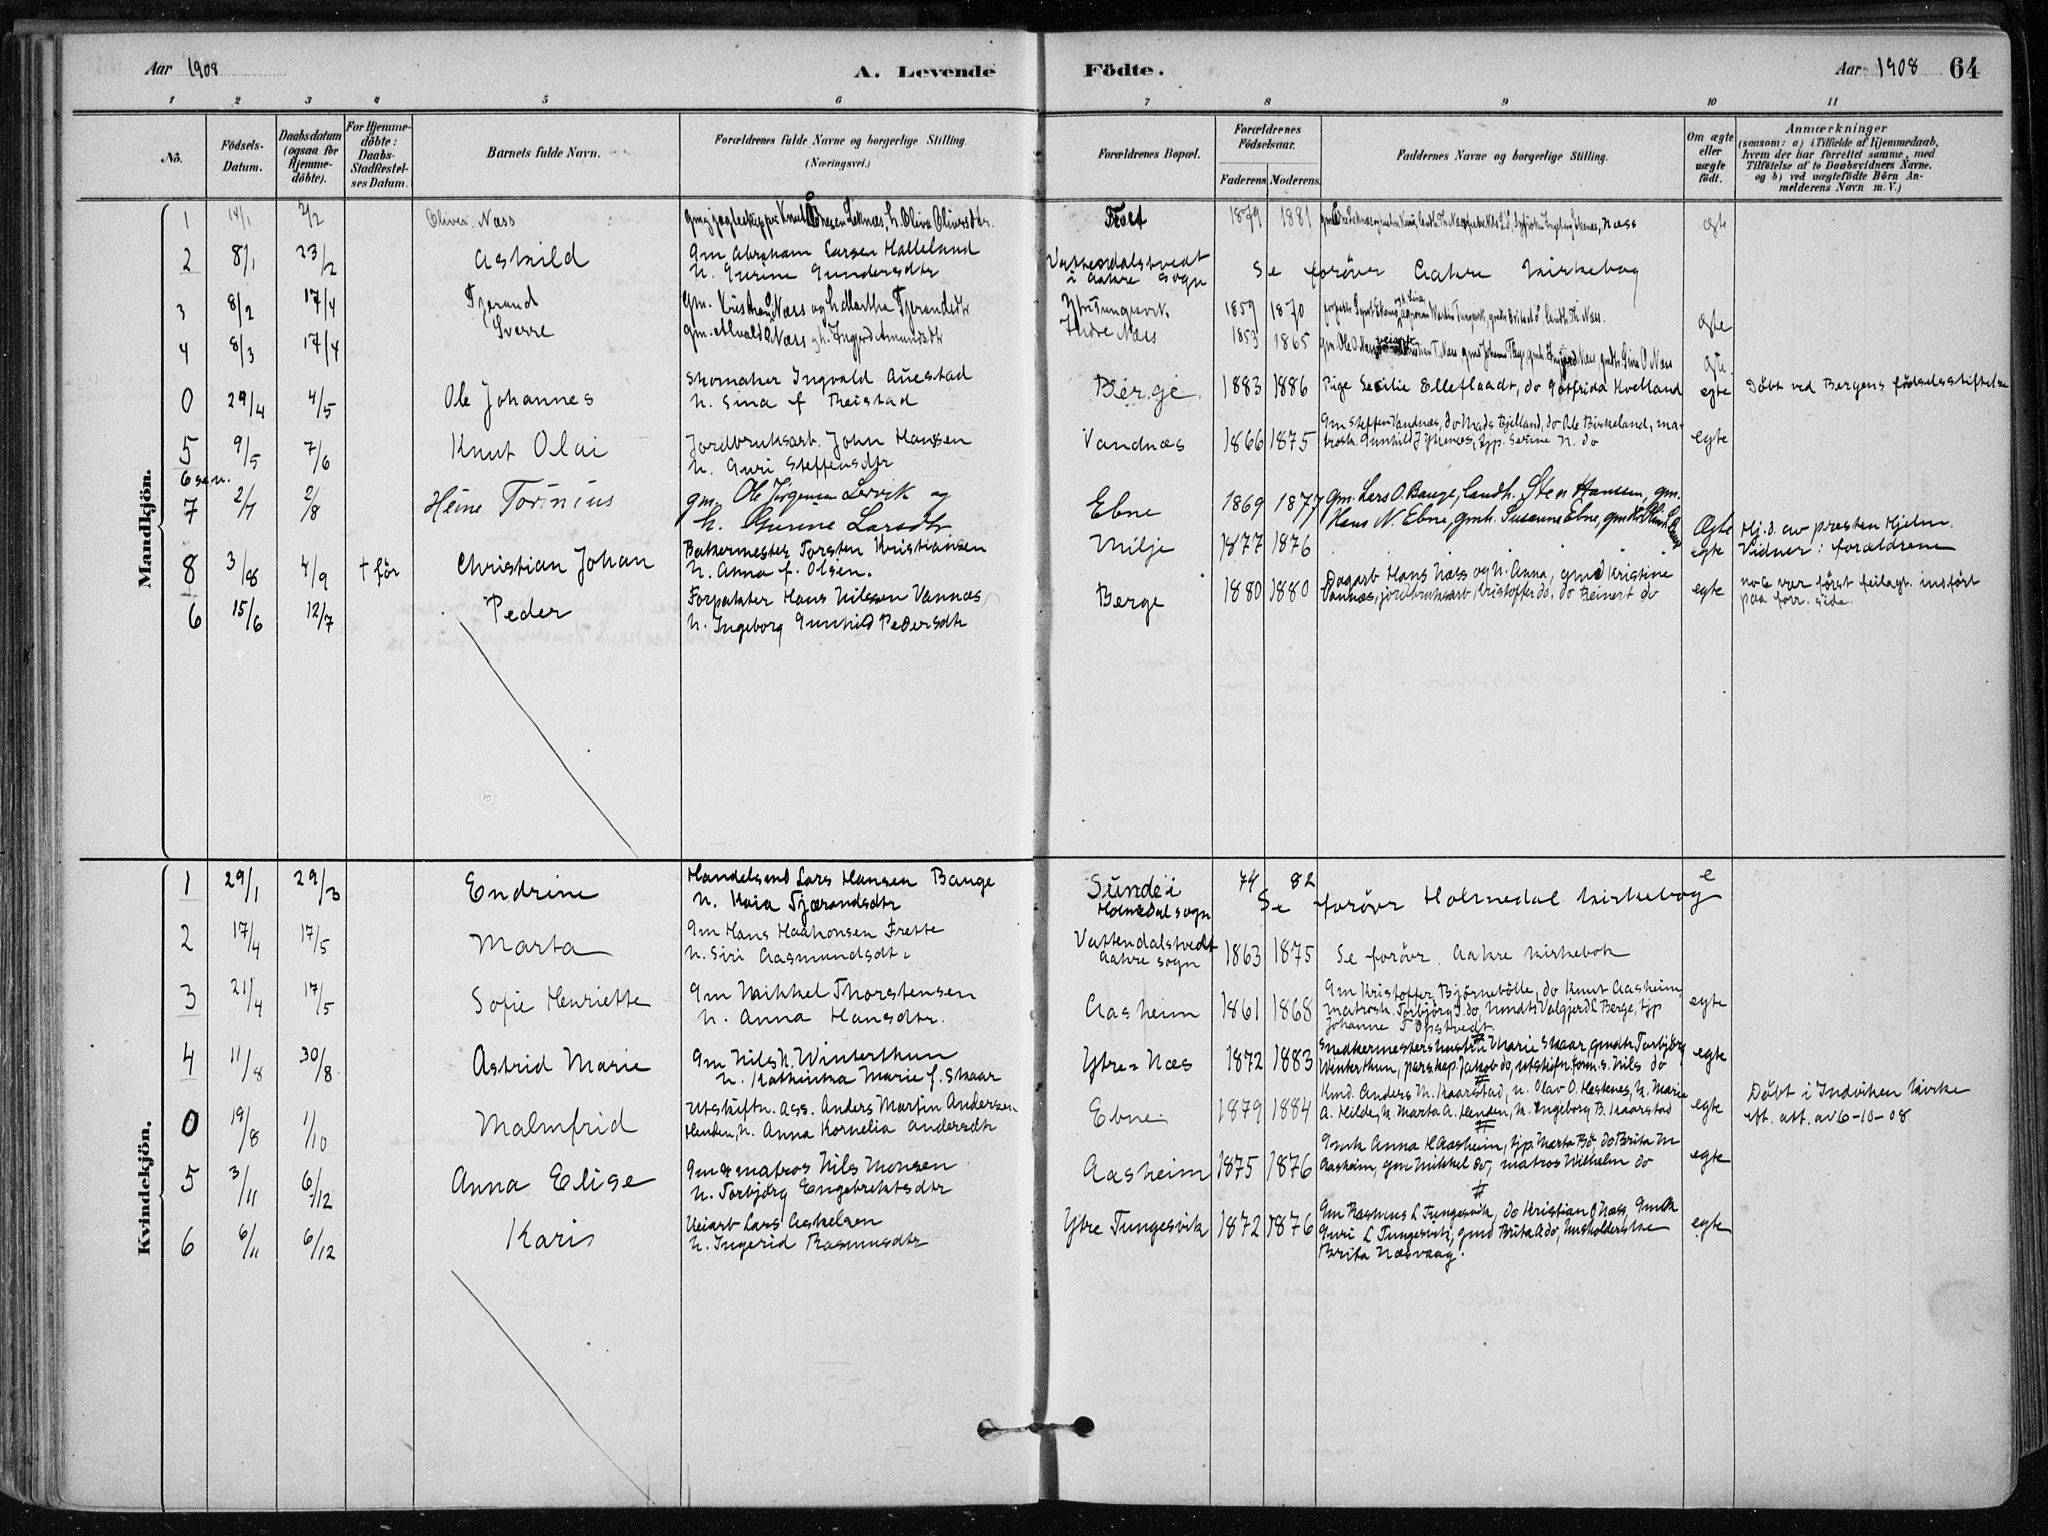 Aar 1908 A. Levende Födte. Aar 1908 64
1 2 3 4 5 6 7 8 9 10 11
No. Födsels-Datum. Daabsdatum (ogsaa for Hjemme-döbte). For Hjemme-döbte: Daabs-Stadfæstel-ses Datum. Barnets fulde Navn. Forældrenes fulde Navne og borgerlige Stilling. (Næringsvei.) Forældrenes Bopæl. Forældrenes Födselsaar. Faderens. Moderens. Faddernes Navne og borgerlige Stilling. Om ægte eller uægte födt. Anmærkninger (saasom: a) i Tilfælde af Hjemmedaab, hvem der har forrettet samme, med Tilföielse af to Daabsvidners Navne. og b) ved uægtefödte Börn An-melderens Navn m. V.)
Mandkjön.
1 14/1 2/2 Oliver Næss 1879 1881 Næss ægte
2 8/1 23/2 Askild Gm Abraham Larsen Halleland
h. Gurine Gundersdtr Vattendalstvedt i Aakre sogn Se forøvr Aakre kirkebog
3 8/2 17/4 Tjerand Gm. Kristian Næss og h. Martha Tjerandsdtr Ytre Tungesvik 1859 1870 ægte
4 8/3 17/4 Sverre Indre Næss 1853 1865 ægte
0 29/4 4/5 Ole Johannes Skomaker Ingvald Auestad
h. Sina f Theistad Berge. 1883 1886 Pige Secilie Elleflaadt, do Gotfrida Kvelland egte Döbt ved Bergens födselsstiftelse
5 9/5 7/6 Knut Olai Jordbruksarb. John Hansen
h. Guri Steffensdtr Vandnæs 1866 1875 Gm Steffen Vandnæs, do Mads Bjelland, do Ole Birkeland, ma-
trosk. Gunhild Jykenæs, tjp. Serine H. do egte
6 se n.
7 2/7 2/8 Heine Torinius gm. Ole Jörgensen Lervik og
h. Gurine Larsdtr Ebne 1869 1877 gm. Lars O. Bauge, landh. Sten Hansen, gm.
Hans N. Ebne, gmh. Susanne Ebne, Ægte Hj. d. av presten Hjelm.
8 3/8 4/9 † för Christian Johan Bakermester Torsten Kristiansen
h. Anna f. Olsen. Milje 1877 1876 egte Vidner: forældrene
6 15/6 12/7 Peder Forpakter Hans Nilssen Vannæs,
h. Ingeborg Gunhild Pedersdtr Berge 1880 1880 Dagarb Hans Næss og h. Anna, gmd Kristine
Vannæs, jordbruksarb Kristoffer do, do Reinert do egte no 6 var först feilagt. indfört
paa forr. side.
Kvindekjön.
1 29/1 29/3 Endrine Handelsend Lars Hansen Bauge
h. Kaia Tjærandsdtr Sunde i
Holmedal sogn 74 82 Se forøvr Holmedal kirkebog e
2 17/4 17/5 Marta Gm Hans Haakonsen Frette
h. Siri Aasmundsdtr. Vattendalstvedt
Aakre sogn 1863 1875 Se forøvr. Aakre kirkebok
3 21/4 17/5 Sofie Henriette Gm Mikkel Thorstensen
h. Anna Hansdtr. Aasheim 1861 1868 Gm Kristoffer Björnebölle, do Knut Aasheim,
matrosk. Torbjörg J. do, Valgjerd L Berge, tjp
Johanne T Opstvedt. egte
4 11/8 30/8 Astrid Marie Gm Nils N. Winterthun
h. Kathinka Marie f. Skaar Ytre-Næs 1872 1883 Snedkermestershustru Marie Skaar gmdtr Torbjörg
Winterthun, Jakob do, Nils do egte
0 19/8 1/10 Malmfrid Utskiftn. ass. Anders Martin Andersen
Henden, h. Anna Kornelia Andersdtr Ebne 1879 1884 Kmd. Anders M. Kaarstad, u. Olav O. Hestenes, h. Marie
A. Hilde, h. Marta A. Henden, h. Ingeborg B. Kaarstad egte Döbt i Indviken kirke
eft. att. av 6-10-08
5 3/11 6/12 Anna Elise Gm & matros Nils Monsen
h. Torbjörg Engebrektsdtr Aasheim 1875 1876 Gmk Anna H Aasheim, tjp. Marta Bö, do Brita M
Aasheim, gm Mikkel do, matros Wilhelm do egte
6 6/11 6/12 Kari Veiarb Lars Askelsen
h. Ingerid Rasmusdtr Ytre Tungesvik 1872 1876 Gm Rasmus L Tungesvik, do Kristian O Næss, Gmk
Guri L Tungesvik, gmd Brita A do, husholderske
Brita Næsvaag. egte